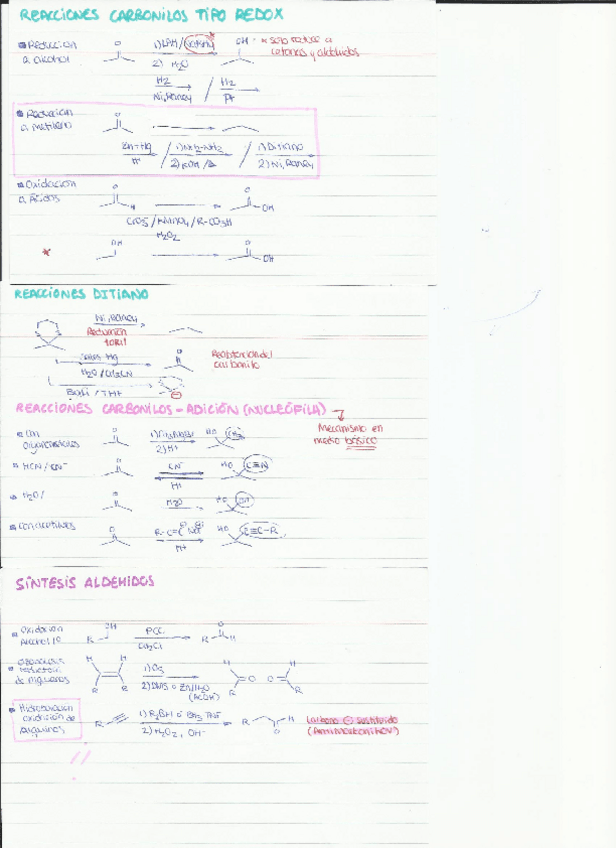 REACCIONES CARBONILOS TIPO REDOX
Reducción a alcohol
1) LAH /
2) H2O
OH
* solo reduce a cetonas y aldehidos
H2 / H2
Ni, Raney / Pt
Reducción a metileno
Zn-Hg / 1) NH2-NH2 / 1) Ditiano
H+ / 2) KOH/Δ / 2) Ni, Raney
Oxidación a Ácidos
H
OH
CrO3 / KMnO4 / R-CO3H
H2O2
*
OH
OH
REACCIONES DITIANO
Ni, Raney
Reducción total
Sales Hg
H2O/CH3CN
Reobtención del carbonilo
BuLi / THF
REACCIONES CARBONILOS - ADICIÓN (NUCLEÓFILA)
Mecanismo en medio básico
Con organometálicos
2) H+
HO
HCN / CN-
CN-
H+
HO
C≡N
H2O /
H2O
HO
OH
Con acetiluros
R-C≡C Na
H+
HO
C≡C-R
SÍNTESIS ALDEHIDOS
Oxidación Alcohol 1º
R
OH
PCC
CH2Cl2
R
H
Ozonólisis reductora de alquenos
H H
R R
1) O3
2) DMS o Zn/H2O
(AcOH)
H
R
O
O
H
R
Hidroboración oxidación de alquinos
R
1) R2BH ó BH3 THF
2) H2O2, OH-
R
H
O
Carbono ⊖ sustituido
(Antimarkonikov)